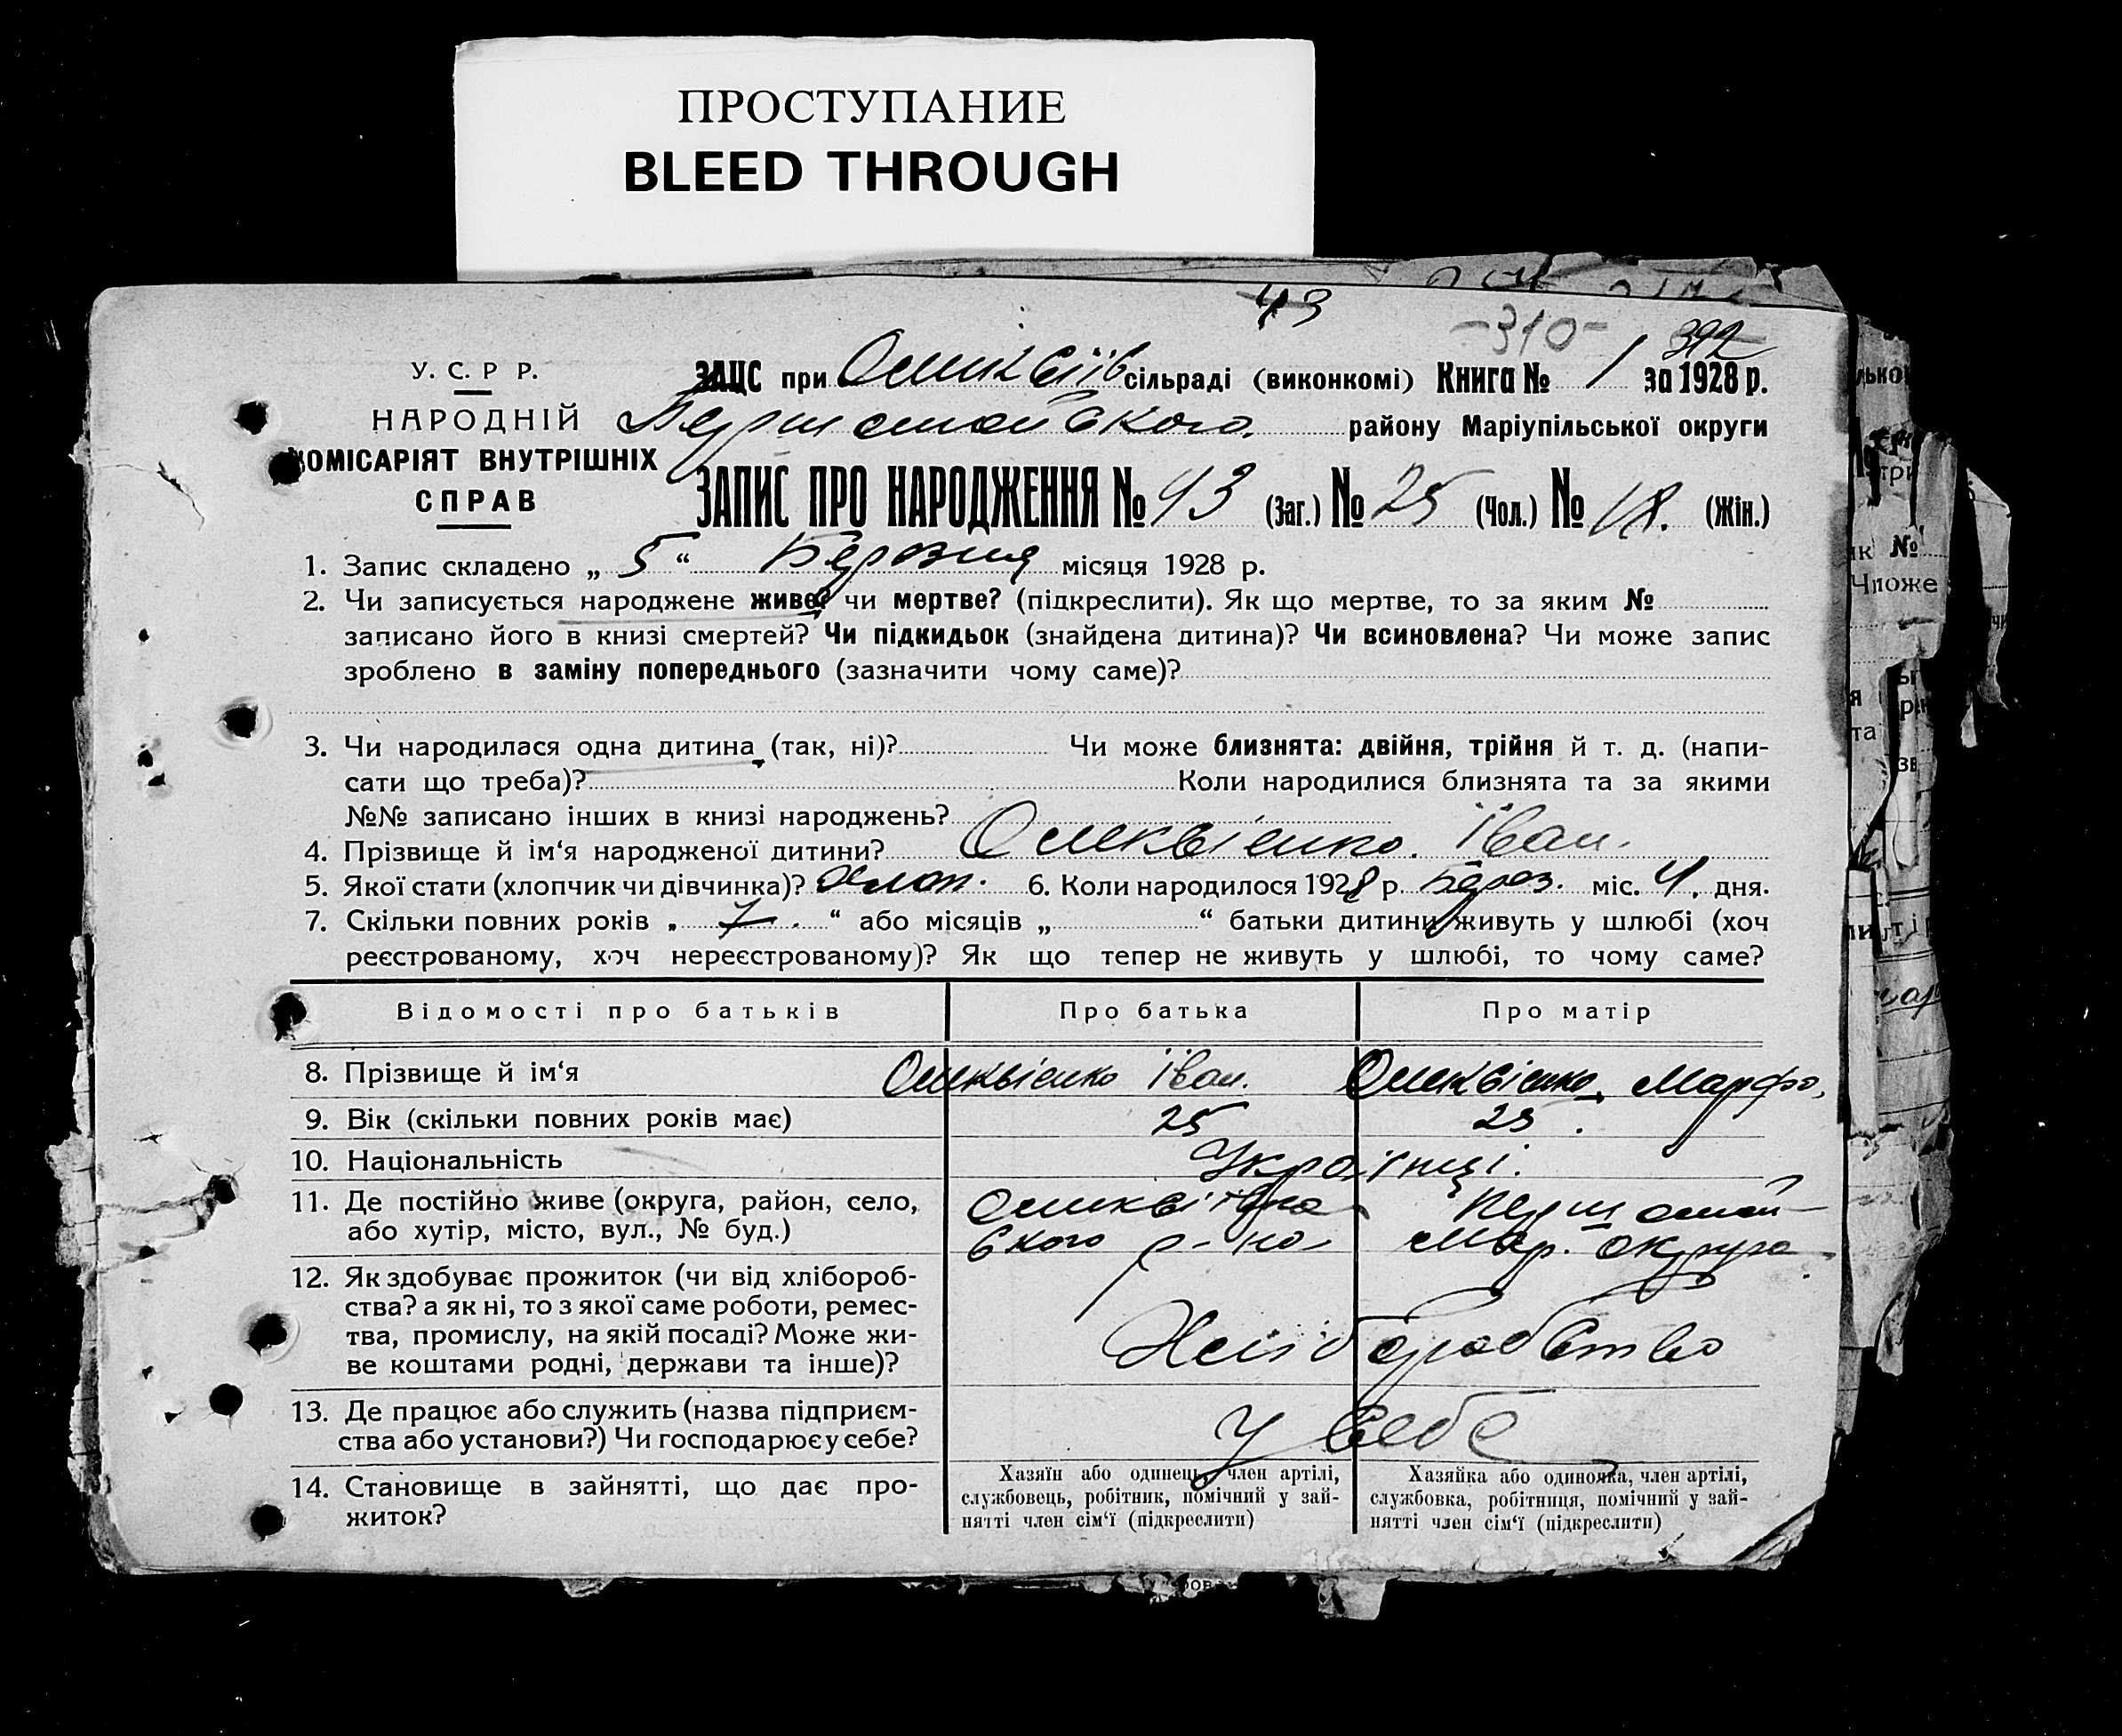 ПРОСТУПАНИЕ
BLEED THROUGH
43
-310-
392
У. С. Р Р.
НАРОДНІЙ
КОМІСАРІЯТ ВНУТРІШНІХ
СПРАВ
ЗАЦС при сільраді (виконкомі) Книга № 1 за 1928 р.
Першомайського району Маріупільської округи
ЗАПИС ПРО НАРОДЖЕННЯ № 43 (Заг.) № 25 (Чол.) № 18. (Жін.)
1. Запис складено „ 5 “ Березня місяця 1928 р.
2. Чи записується народжене живе? чи мертве? (підкреслити). Як що мертве, то за яким №
записано його в книзі смертей? Чи підкидьок (знайдена дитина)? Чи всиновлена? Чи може запис
зроблено в заміну попереднього (зазначити чому саме)?
3. Чи народилася одна дитина (так, ні)? Чи може близнята: двійня, трійня й т. д. (напи-
сати що треба)? Коли народилися близнята та за якими
№№ записано інших в книзі народжень?
4. Прізвище й ім‘я народженої дитини? Іван.
5. Якої стати (хлопчик чи дівчинка)? хлоп. 6. Коли народилося 1928 р. Берез. міс. 4. дня.
7. Скільки повних років „ 7. “ або місяців „ “ батьки дитини живуть у шлюбі (хоч
реєстрованому, хоч нереєстрованому)? Як що тепер не живуть у шлюбі, то чому саме?
Відомості про батьків Про батька Про матір
8. Прізвище й ім‘я Іван. Марфа,
9. Вік (скільки повних років має) 25 23.
10. Національність Українці.
11. Де постійно живе (округа, район, село, Першомай-
або хутір, місто, вул., № буд.) ського р-на Мар. округа
12. Як здобуває прожиток (чи від хлібороб-
ства? а як ні, то з якої саме роботи, ремес-
тва, промислу, на якій посаді? Може жи-
ве коштами родні, держави та інше)? Хліборобство
13. Де працює або служить (назва підприєм-
ства або установи?) Чи господарює у себе? у себе
14. Становище в зайнятті, що дає про-
житок?
Хазяїн або одинець, член артілі,
службовець, робітник, помічний у зай-
нятті член сім‘ї (підкреслити)
Хазяйка або одиночка, член артілі,
службовка, робітниця, помічний у зай-
нятті член сім‘ї (підкреслити)